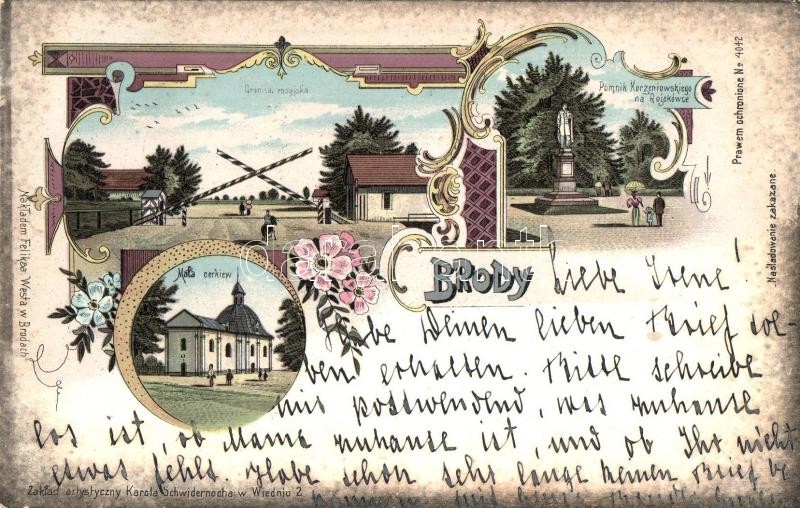 Granica rosyjska
Pomnik Korzeniowskiego
na Rojekówce
Prawem ochronione No 4042
Naśladowanie zakazane.
Nakładem Feliksa Westa w Brodach
Mała cerkiew
darabanth
BRODY
Liebe Irene!
Habe Deinen lieben Brief soe-
ben erhalten. Bitte schreibe
mir postwendend, was zuhause
los ist, ob Mama zuhause ist, und ob Ihr nicht
etwas fehlt. Habe schon sehr lange keinen Brief be
Zakład artystyczny Karola Schwidernocha w Wiedniu 2